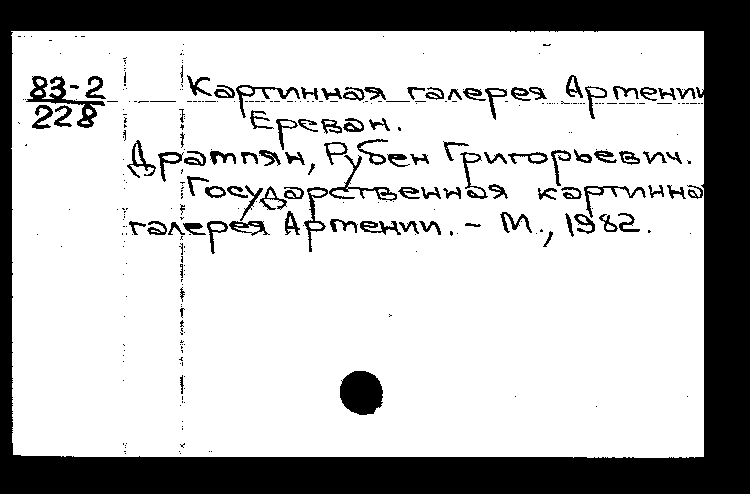 83-2
228
Картинная галерея Армении
Ереван.
Дрампян, Рубен Григорьевич.
Государственная картинна
галерея Армении. - М., 1982.